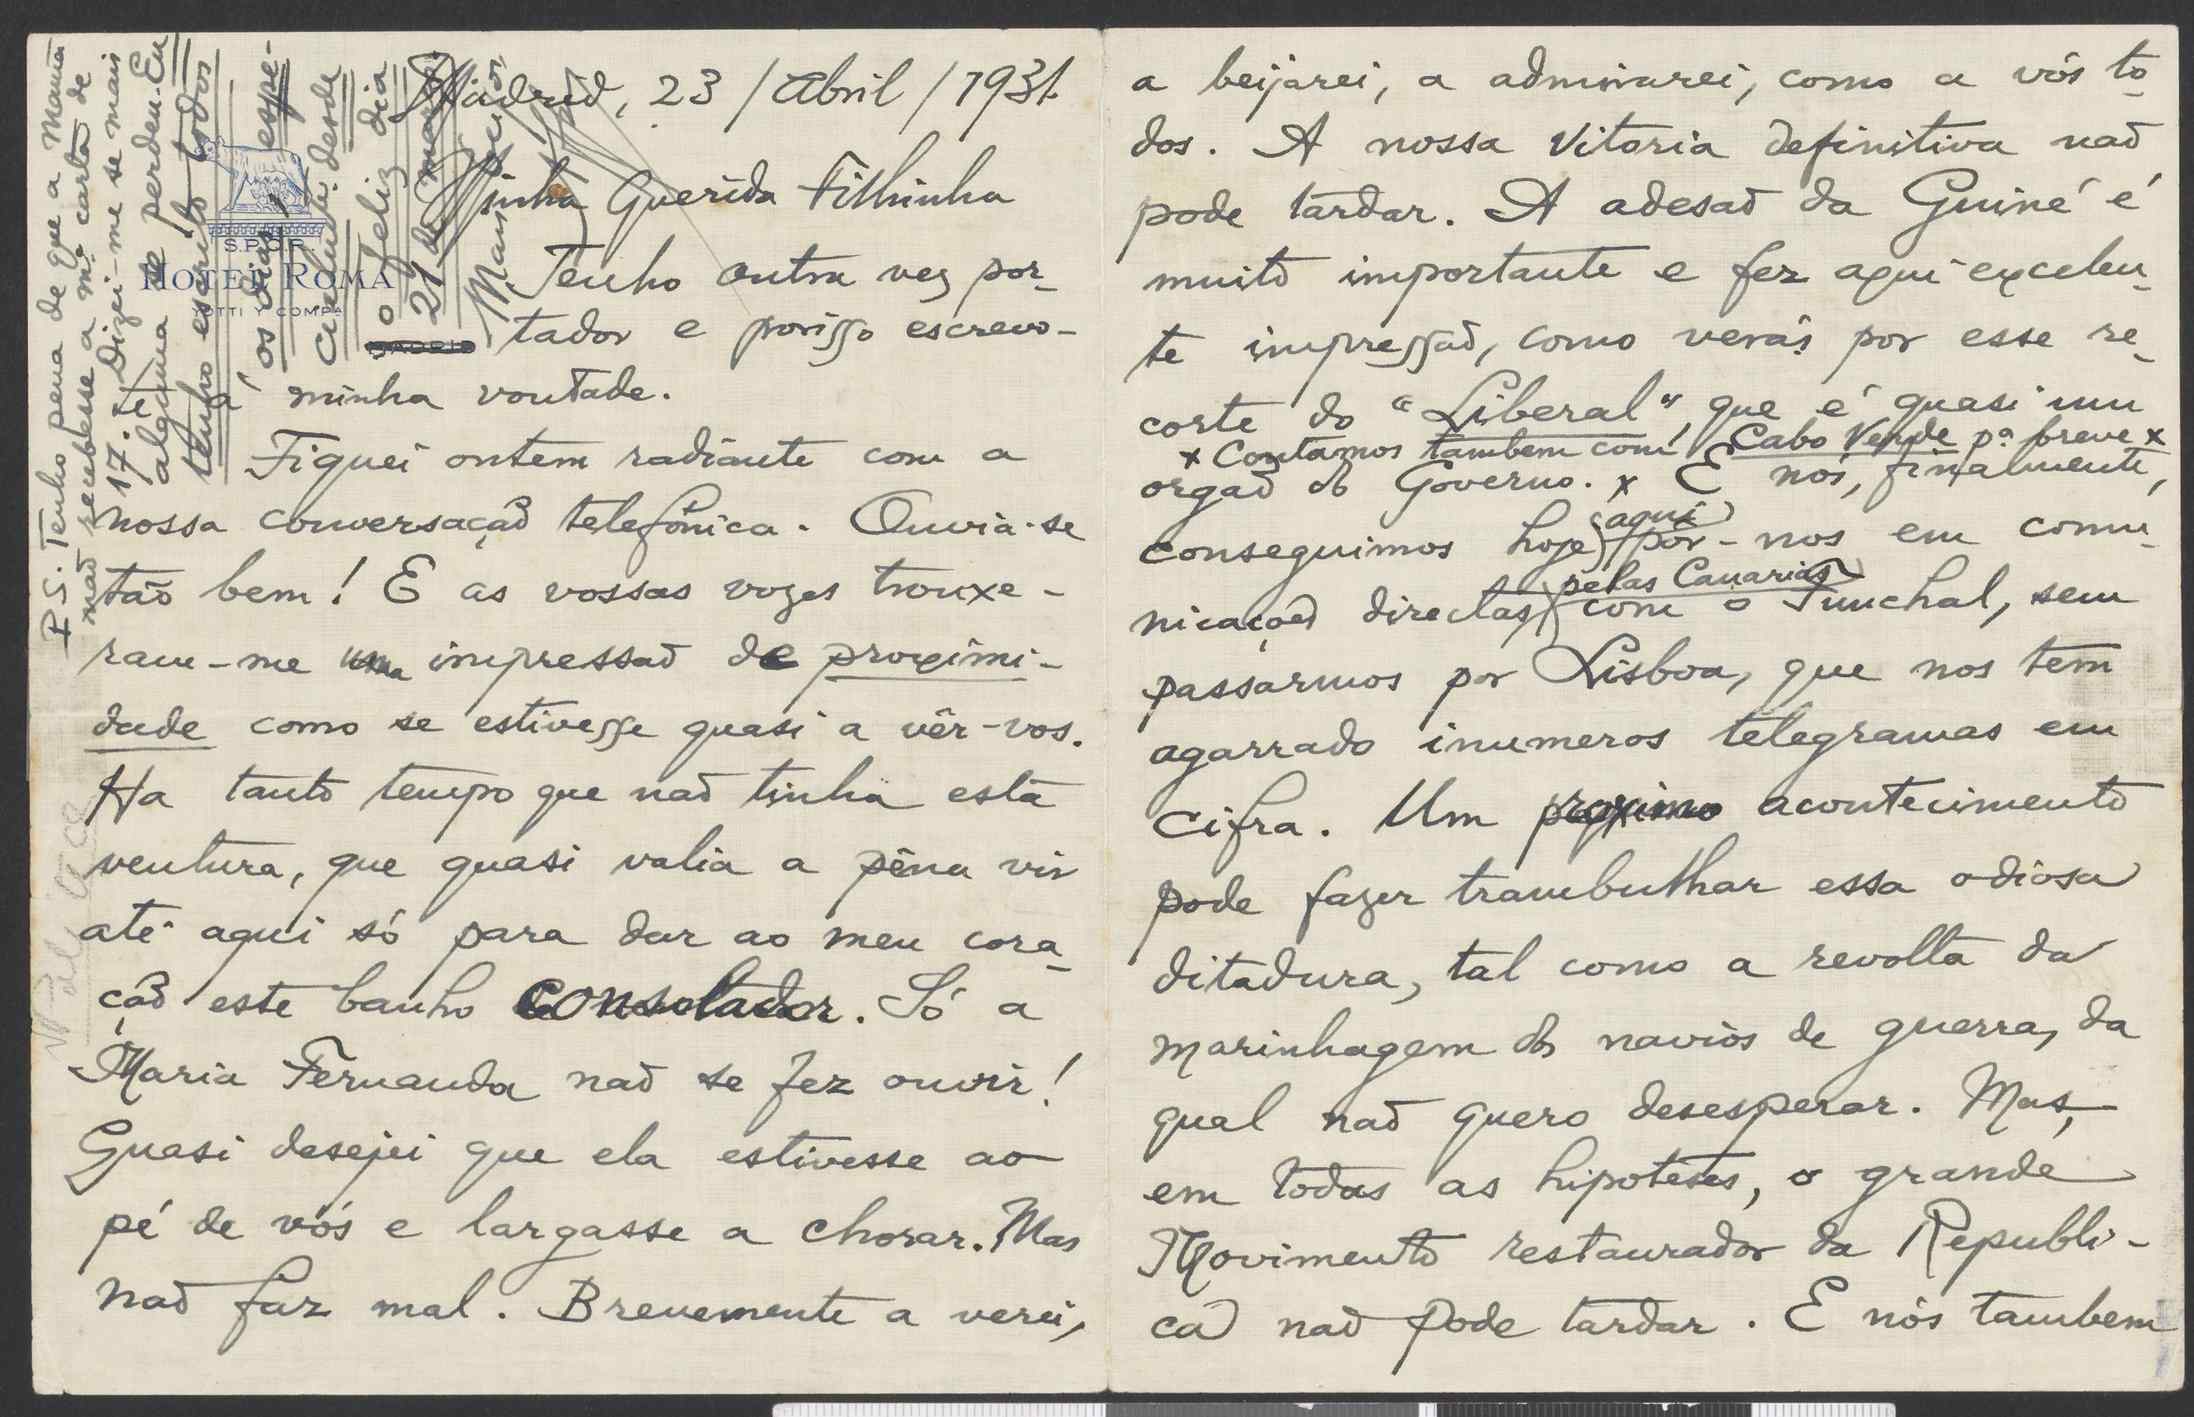 Madrid, 23/Abril/1931.
Minha Querida Filhinha
Tenho outra vez por-
tador e porisso escrevo-
te á minha vontade.
Fiquei ontem radiante com a
nossa conversação telefônica. Ouvia-se
tão bem! E as vossas vozes trouxe-
ram-me uma impressão de proximi-
dade como se estivesse quasi a vêr-vos.
Ha tanto tempo que não tinha esta
ventura, que quasi valia a pêna vir
até aqui só para dar ao meu cora-
ção este banho consolador. Só a
Maria Fernanda não se fez ouvir!
Quasi desejei que ela estivesse ao
pé de vós e largasse a chorar. Mas
não faz mal. Brevemente a verei,
S.P.Q.R.
HOTEL ROMA
YOTTI Y COMPA
MADRID
P.S. Tenho pena de que a Mamã
não recebesse a mª carta de
17. Dizei-me se mais
alguma se perdeu. Eu
tenho escrito todos
os dias, espe-
cialmente desde
o feliz dia
21 de
a beijarei, a admirarei, como a vós to-
dos. A nossa Vitoria definitiva não
pode tardar. A adesão da Guiné é
muito importante e fez aqui excelen-
te impressão, como verás por esse re-
corte do "Liberal", que é quasi um
x Contamos tambem com Cabo Verde pª breve x
orgão do Governo. x E nós, finalmente,
conseguimos hoje aqui pôr-nos em comu-
nicações directas pelas Canarias com o Funchal, sem
passarmos por Lisboa, que nos tem
agarrado inumeros telegramas em
cifra. Um proximo acontecimento
pode fazer trambulhar essa odiosa
ditadura, tal como a revolta da
marinhagem dos navios de guerra, da
qual não quero desesperar. Mas,
em todas as hipoteses, o grande
Movimento restaurador da Republi-
ca não pode tardar. E nós tambem